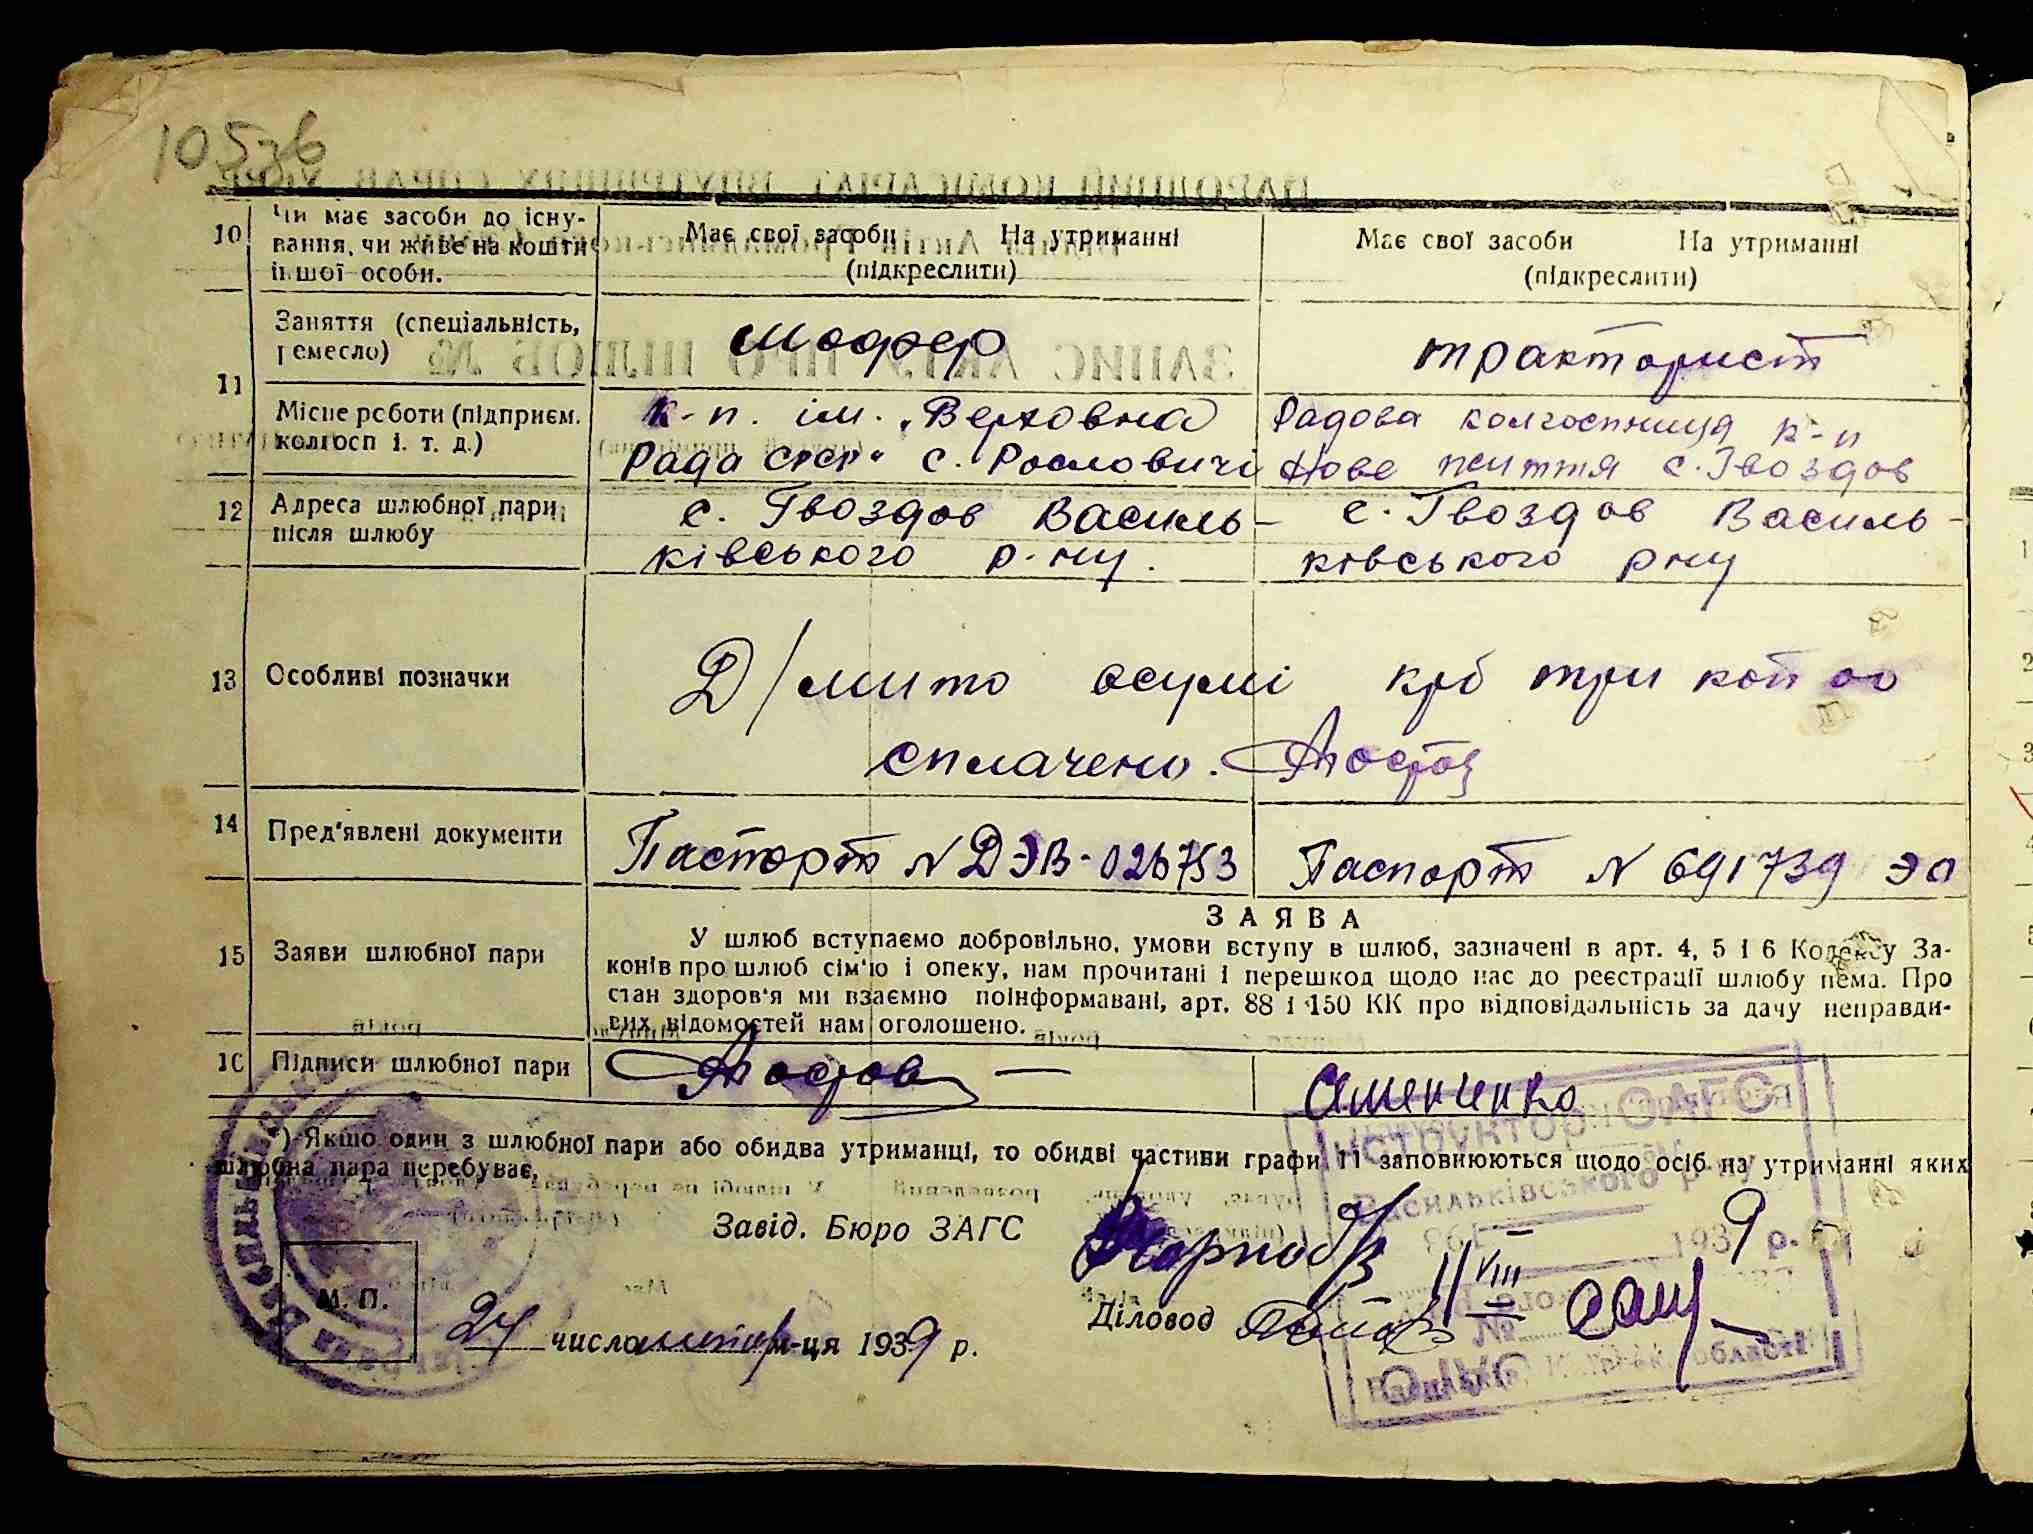 105зв
10 Чи має засоби до існу-
вання, чи живе на кошти
іншої особи.
Має свої засоби На утриманні
(підкреслити)
Має свої засоби На утриманні
(підкреслити)
11 Заняття (спеціальність,
ремесло)
шофер
тракторист
Місце роботи (підприєм.
колгосп і. т. д.)
к-п. ім. „Верховна
Рада СРСР" с. Рословичі
Радова колгоспниця к-п
Нове життя с. Гвоздов
12 Адреса шлюбної пари
після шлюбу
с. Гвоздов Василь-
ківського р-ну.
с. Гвоздов Василь-
ківського рну
13 Особливі позначки
Д/мито осумі крб три коп оо
сплачено.
14 Пред'явлені документи
Паспорт N ДЭВ-026753
Паспорт N 691739 ЭО
15 Заяви шлюбної пари
ЗАЯВА
У шлюб вступаємо добровільно, умови вступу в шлюб, зазначені в арт. 4, 5 і 6 Кодексу За-
конів про шлюб сім'ю і опеку, нам прочитані і перешкод щодо нас до реєстрації шлюбу нема. Про
стан здоров'я ми взаємно поінформавані, арт. 88 і 150 КК про відповідальність за дачу неправди-
вих відомостей нам оголошено.
16 Підписи шлюбної пари
) Якщо один з шлюбної пари або обидва утриманці, то обидві частини графи 11 заповнюються щодо осіб на утриманні яких
шлюбна пара перебуває,
Завід. Бюро ЗАГС
ІНСТРУКТОР ЗАГС
Васильківського р-ну
11/VIII 1939 р.
М. П.
Діловод
24 числа м-ця 1939 р.
області